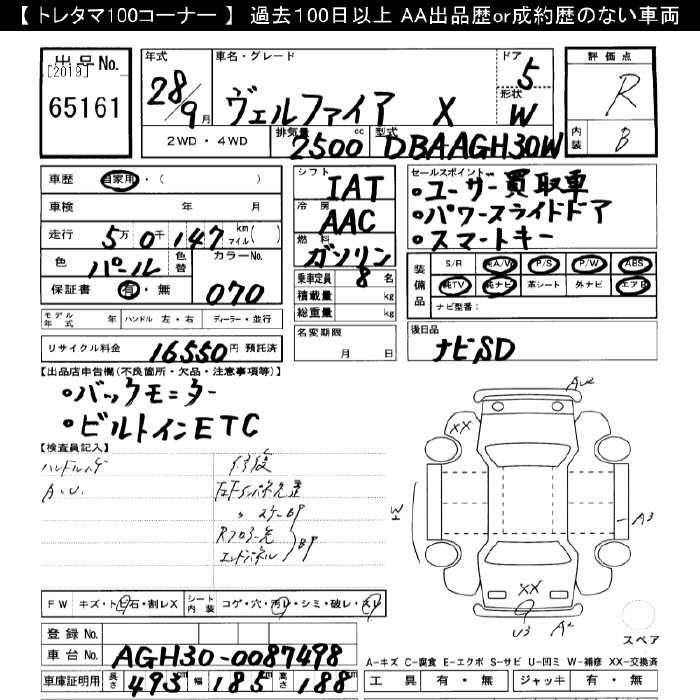 【 トレタマ100コーナー 】 過去100日以上 AA出品歴or成約歴のない車両
出品No.
[2019]
65161
年式
28/9月
車名・グレード
ヴェルファイア X
ドア
5
形状
W
評価点
R
内装
B
2WD・4WD
排気量
2500cc
型式
DBAAGH30W
車歴 自家用・( )
車検 年 月
走行 5万0千147 km マイル( )
色 パール
色替
カラーNo.
070
保証書 有・無
モデル年式 年
ハンドル 左・右
ディーラー・並行
リサイクル料金 16550円 預託済
シフト
IAT
冷房
AAC
燃料
ガソリン
乗車定員 8名
積載量 kg
総重量 kg
名変期限
月 日
セールスポイント
・ユーザー買取車
・パワースライドドア
・スマートキー
装備品
S/R 純A/W P/S P/W ABS
純TV 純ナビ 革シート 外ナビ エアB
ナビ型番:
後日品
ナビSD
【出品店申告欄(不良箇所・欠品・注意事項等)】
・バックモニター
・ビルトインETC
【検査員記入】
A.U.
修復
Rフロアー
エンドパネル
BP
A2
XX
H
W
A3
XX
U3
A2
スペア
FW キズ・トビ石・割レX
シート内装 コゲ・穴・汚レ・シミ・破レ・スレ
登録No.
車台No. AGH30-0087498
車庫証明用 長さ 493 幅 185 高さ 188
A-キズ C-腐食 E-エクボ S-サビ U-凹ミ W-補修 XX-交換済
工具 有・無 ジャッキ 有・無